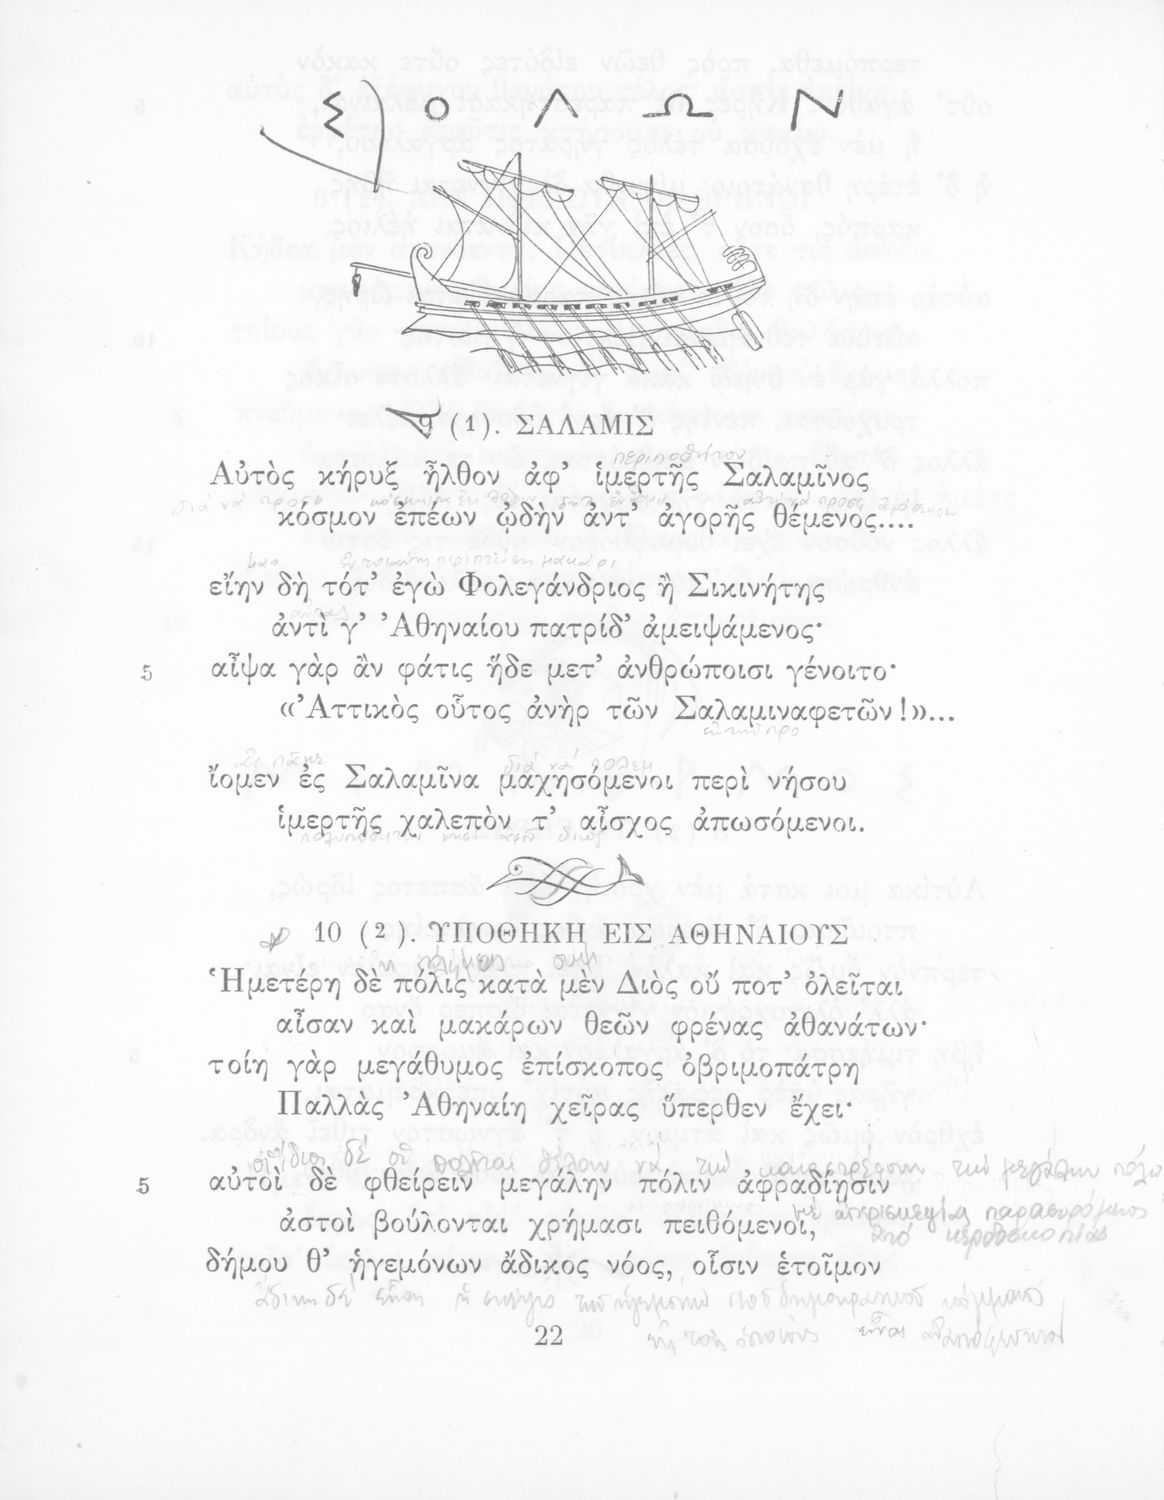 ΣΟΛΩΝ
9 (1). ΣΑΛΑΜΙΣ
περιποθήτου
Αὐτὸς κήρυξ ἦλθον ἀφ’ ἱμερτῆς Σαλαμῖνος
διὰ νὰ προσφ
κόσμον ἐπέων ᾠδὴν ἀντ’ ἀγορῆς θέμενος....
εἴην δὴ τότ’ ἐγὼ Φολεγάνδριος ἢ Σικινήτης
ἀντί γ’ Ἀθηναίου πατρίδ’ ἀμειψάμενος·
5 αἶψα γὰρ ἂν φάτις ἥδε μετ’ ἀνθρώποισι γένοιτο·
«Ἀττικὸς οὗτος ἀνὴρ τῶν Σαλαμιναφετῶν!»...
ἂς πᾶμε διὰ νὰ πολεμ
ἴομεν ἐς Σαλαμῖνα μαχησόμενοι περὶ νήσου
ἱμερτῆς χαλεπὸν τ’ αἶσχος ἀπωσόμενοι.
10 (2). ΥΠΟΘΗΚΗ ΕΙΣ ΑΘΗΝΑΙΟΥΣ
Ἡμετέρη δὲ πόλις κατὰ μὲν Διὸς οὔ ποτ’ ὀλεῖται
αἶσαν καὶ μακάρων θεῶν φρένας ἀθανάτων·
τοίη γὰρ μεγάθυμος ἐπίσκοπος ὀβριμοπάτρη
Παλλὰς Ἀθηναίη χεῖρας ὕπερθεν ἔχει·
οἱ ἴδιοι δὲ οἱ πολῖται θέλουν νὰ τὴν καταστρέψουν τὴν μεγάλην πόλιν
5 αὐτοὶ δὲ φθείρειν μεγάλην πόλιν ἀφραδίῃσιν
παρασυρόμενοι
ἀστοὶ βούλονται χρήμασι πειθόμενοι,
ἀπὸ κερδοσκοπίας
δήμου θ’ ἡγεμόνων ἄδικος νόος, οἷσιν ἑτοῖμον
22